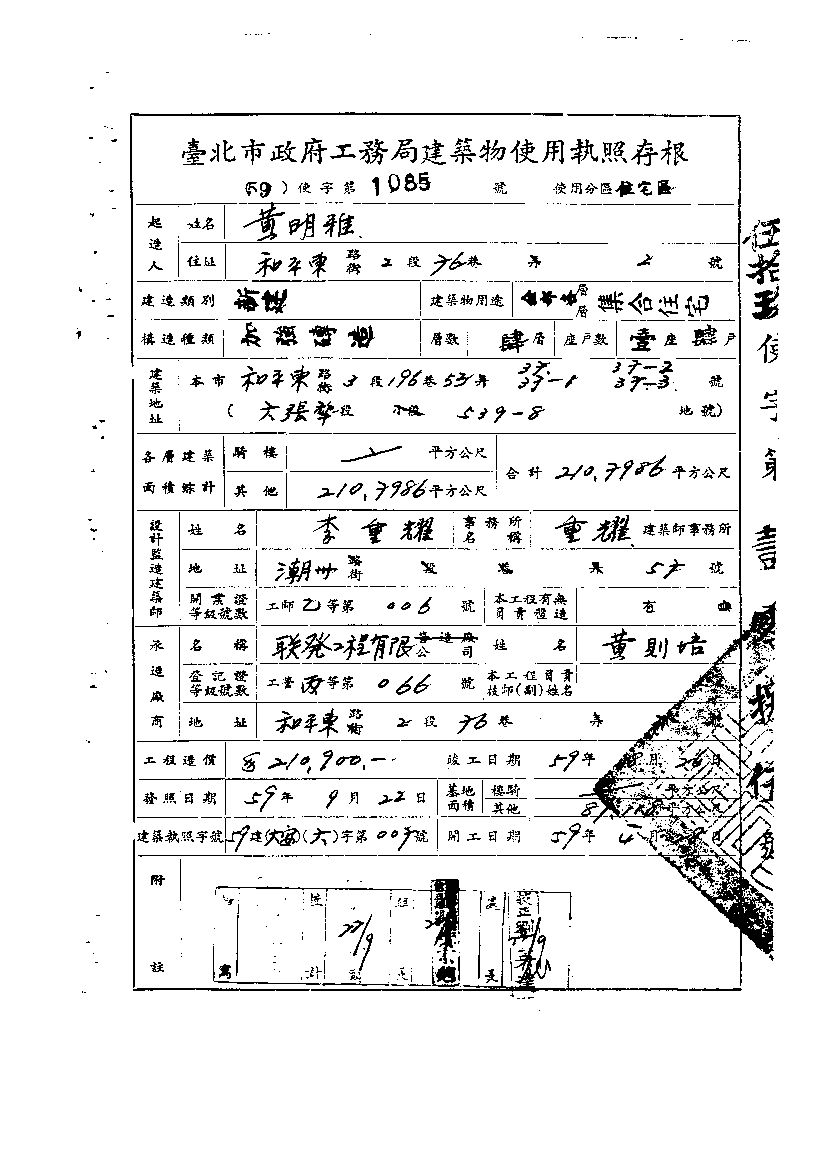 臺北市政府工務局建築物使用執照存根
(59)使字第1085號 使用分區住宅區
起造人 姓名 黃明雅
住址 和平東路街2段76巷 弄 2 號
建造類別 新建 建築物用途 層層 集合住宅
構造種類 加強磚造 層數 肆層 座戶數 壹座肆戶
建築地址 本市和平東路街3段196巷53弄 37 37-1 37-2 37-3 號
(六張犂段 小段 539-8 地號)
各層建築面積綜計 騎樓 平方公尺 合計 210,7986平方公尺
其他 210,7986平方公尺
設計監造建築師 姓名 李重耀 事務所名稱 重耀 建築師事務所
地址 潮州路街 段 巷 弄 57 號
開業證等級號數 工師乙等第006號 本工程有無負責監造 有
承造廠商 名稱 联發工程有限營造廠公司 姓名 黃則培
登記證等級號數 工營丙等第066號 本工程負責技師(副)姓名
地址 和平東路街2段76巷 弄 號
工程造價 210,900.- 竣工日期 59年 月 日
發照日期 59年9月22日 基地面積 樓騎 平方公尺
其他 平方公尺
建築執照字號 59建(大安)(六)字第009號 開工日期 59年4月 日
附註
22/9
伍拾玖使字第壹